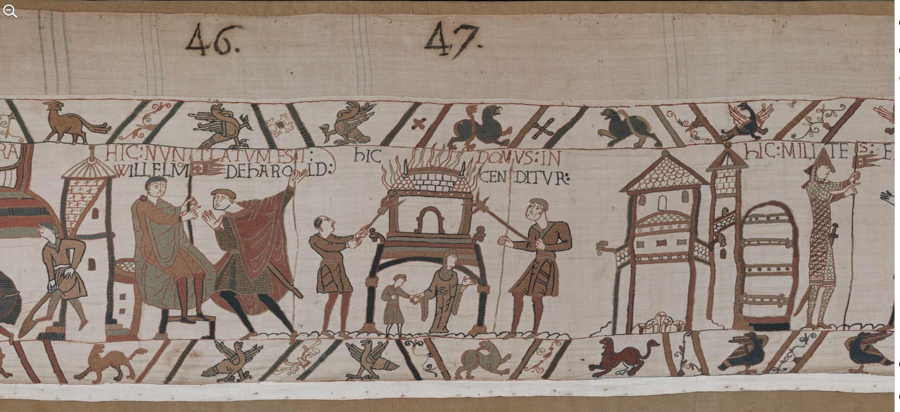 46.
47.
RA
HIC:NVNTIATVM EST:
WILLELM DE hAROLD:
hIC DOMVS:IN
CENDITVR:
hIC:MILITES: E